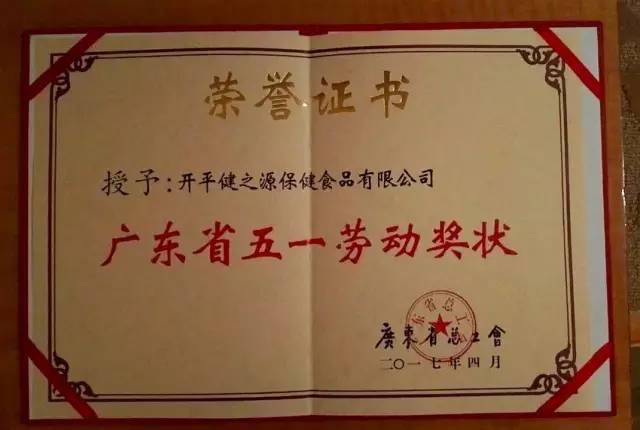 荣誉证书
授予:开平健之源保健食品有限公司
广东省五一劳动奖状
廣東省总工會
二〇一七年四月